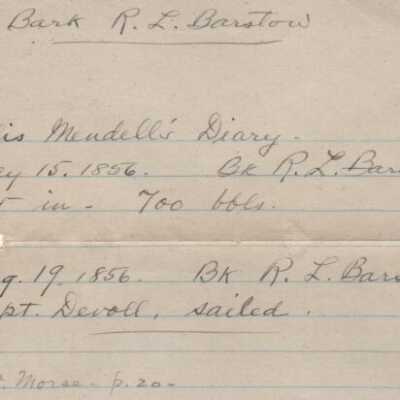 Bark R. L. Barstow
Mendell's Diary.
15. 1856. Bk R. L. Bar
in - 700 bbls.
19. 1856. Bk R. L. Bars
pt. Devoll, sailed.
Morse - p. 20 -